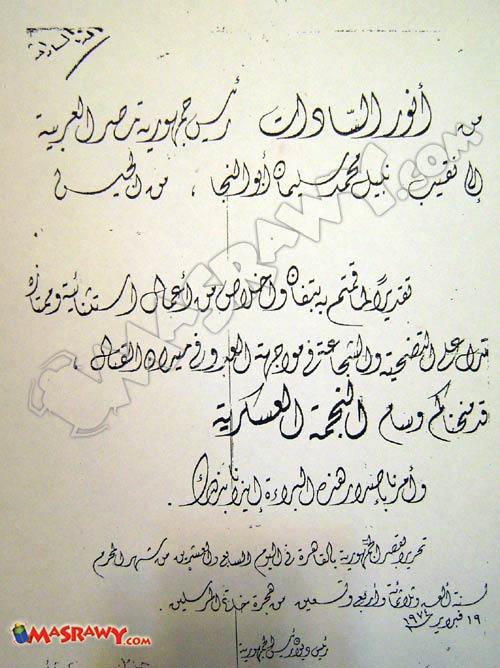 أنور السادات
من أنور السّادات رئيس جمهورية مصر العربية
إلى نقيب نبيل محمد سليمان أبو النجا ، من الجيش
تقديرًا لما قمتم به بتفان وإخلاص من أعمال استثنائية وممتازة
تدل على التضحية والشجاعة في مواجهة العدو في ميدان القتال ،
قد منحناكم وسام النجمة العسكرية
وأمرنا بإصدار هذه البراءة إيذانا بذلك .
تحريرا بقصر الجمهورية بالقاهرة في اليوم السابع والعشرين من شهر المحرم
لسنة ألف وثلاثمائة وأربع وتسعين من هجرة خاتم المرسلين .
١٩ فبراير ١٩٧٤
رئيس ديوان رئيس الجمهورية
MASRAWY.com
MASRAWY.com